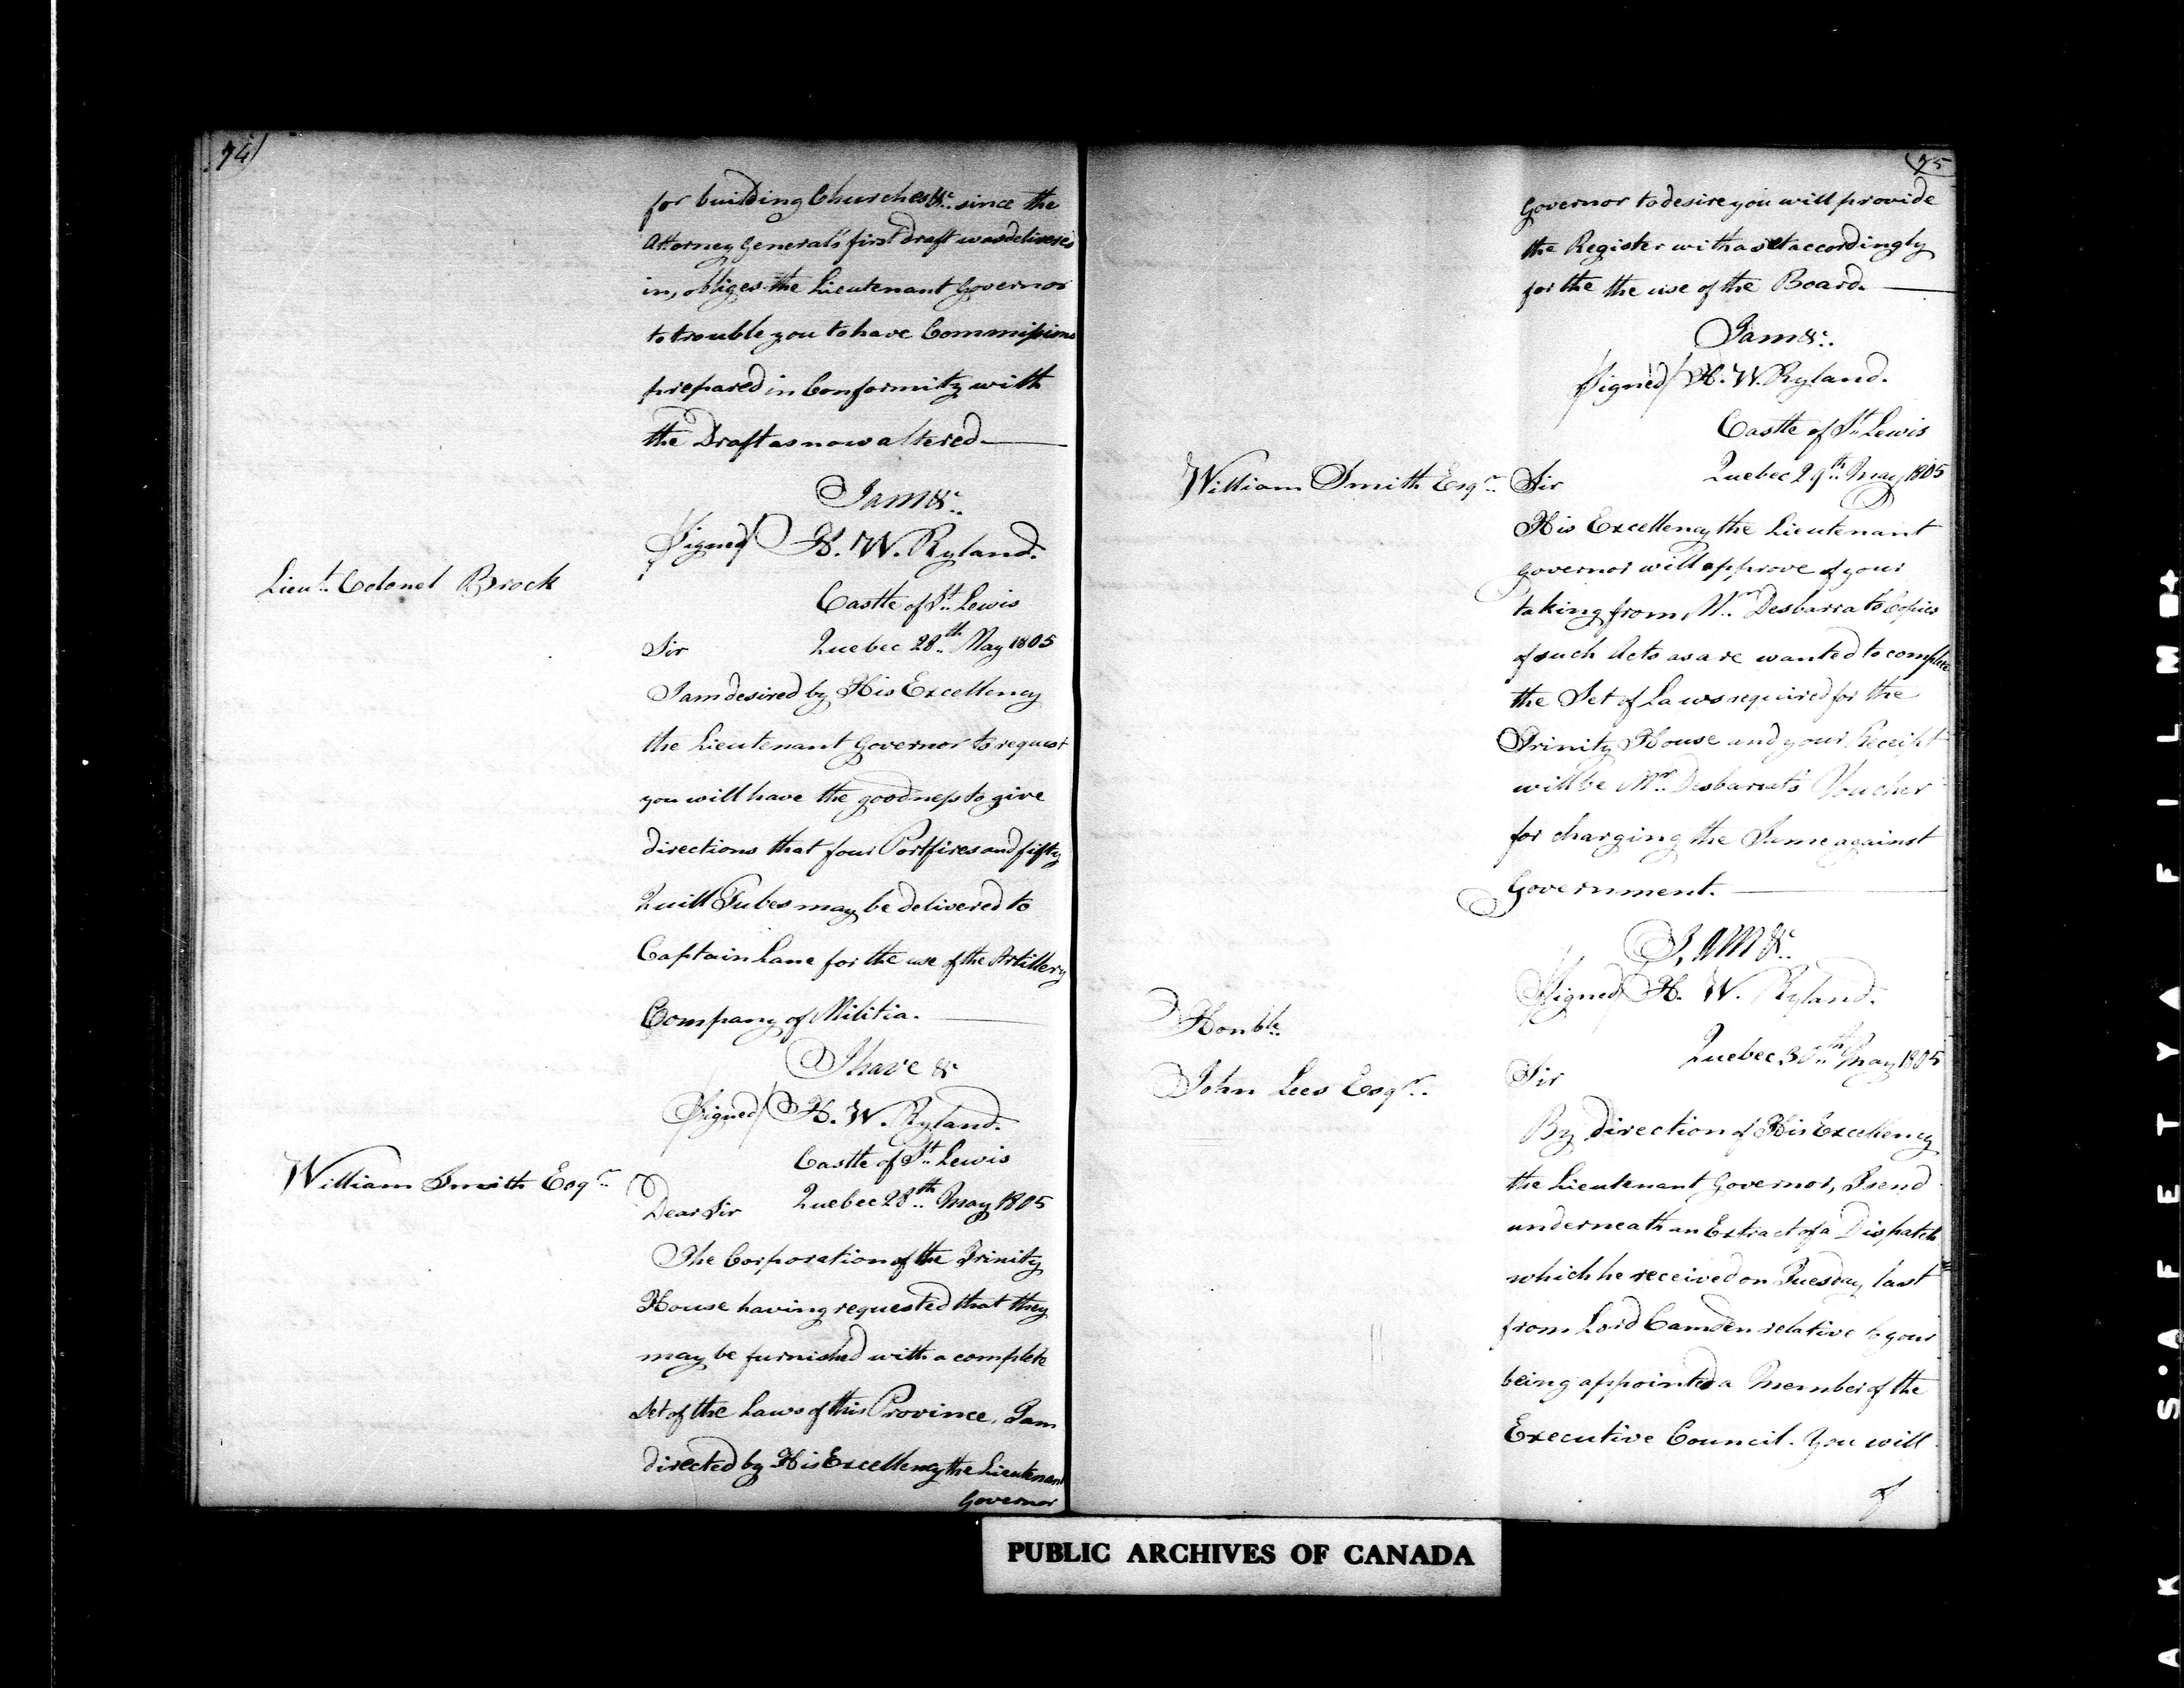 74)
for building Churches &c. since the
Attorney General's first draft was delivered
in, obliges the Lieutenant Governor
to trouble you to have Commissions
prepared in Conformity with
the Draft as now altered.
I am &c.
Signed/ H. W. Ryland.
Lieut. Colonel Brock
Castle of St. Lewis
Sir Quebec 28th May 1805
I am desired by His Excellency
the Lieutenant Governor to request
you will have the goodness to give
directions that four Portfires and fifty
Quill Tubes may be delivered to
Captain Lane for the use of the Artillery
Company of Militia.
I have &
Signed/ H. W. Ryland.
Castle of St. Lewis
William Smith Esqr.
Dear Sir Quebec 28th May 1805
The Corporation of the Trinity
House having requested that they
may be furnished with a complete
Set of the Laws of this Province, I am
directed by His Excellency the Lieutenant
Governor
(75
Governor to desire you will provide
the Register with a set accordingly
for the the use of the Board.
I am &c.
Signed/ H. W. Ryland.
Castle of St. Lewis
William Smith Esqr. Sir Quebec 29th May 1805
His Excellency the Lieutenant
Governor will approve of your
taking from Mr. Desbarrats Copies
of such Acts as are wanted to complete
the Set of Laws required for the
Trinity House and your Receipt
will be Mr. Desbarrats Voucher
for charging the Same against
Government.
I, am &c.
Signed/ H. W. Ryland.
Honble.
John Lees Esqr.
Quebec 30th May 1805
Sir
By direction of His Excellency
the Lieutenant Governor, I send
underneath an Extract of a Dispatch
which he received on Tuesday last
from Lord Camden relative to your
being appointed a Member of the
Executive Council. You will
of
PUBLIC ARCHIVES OF CANADA
AK S'AFETY A FILM